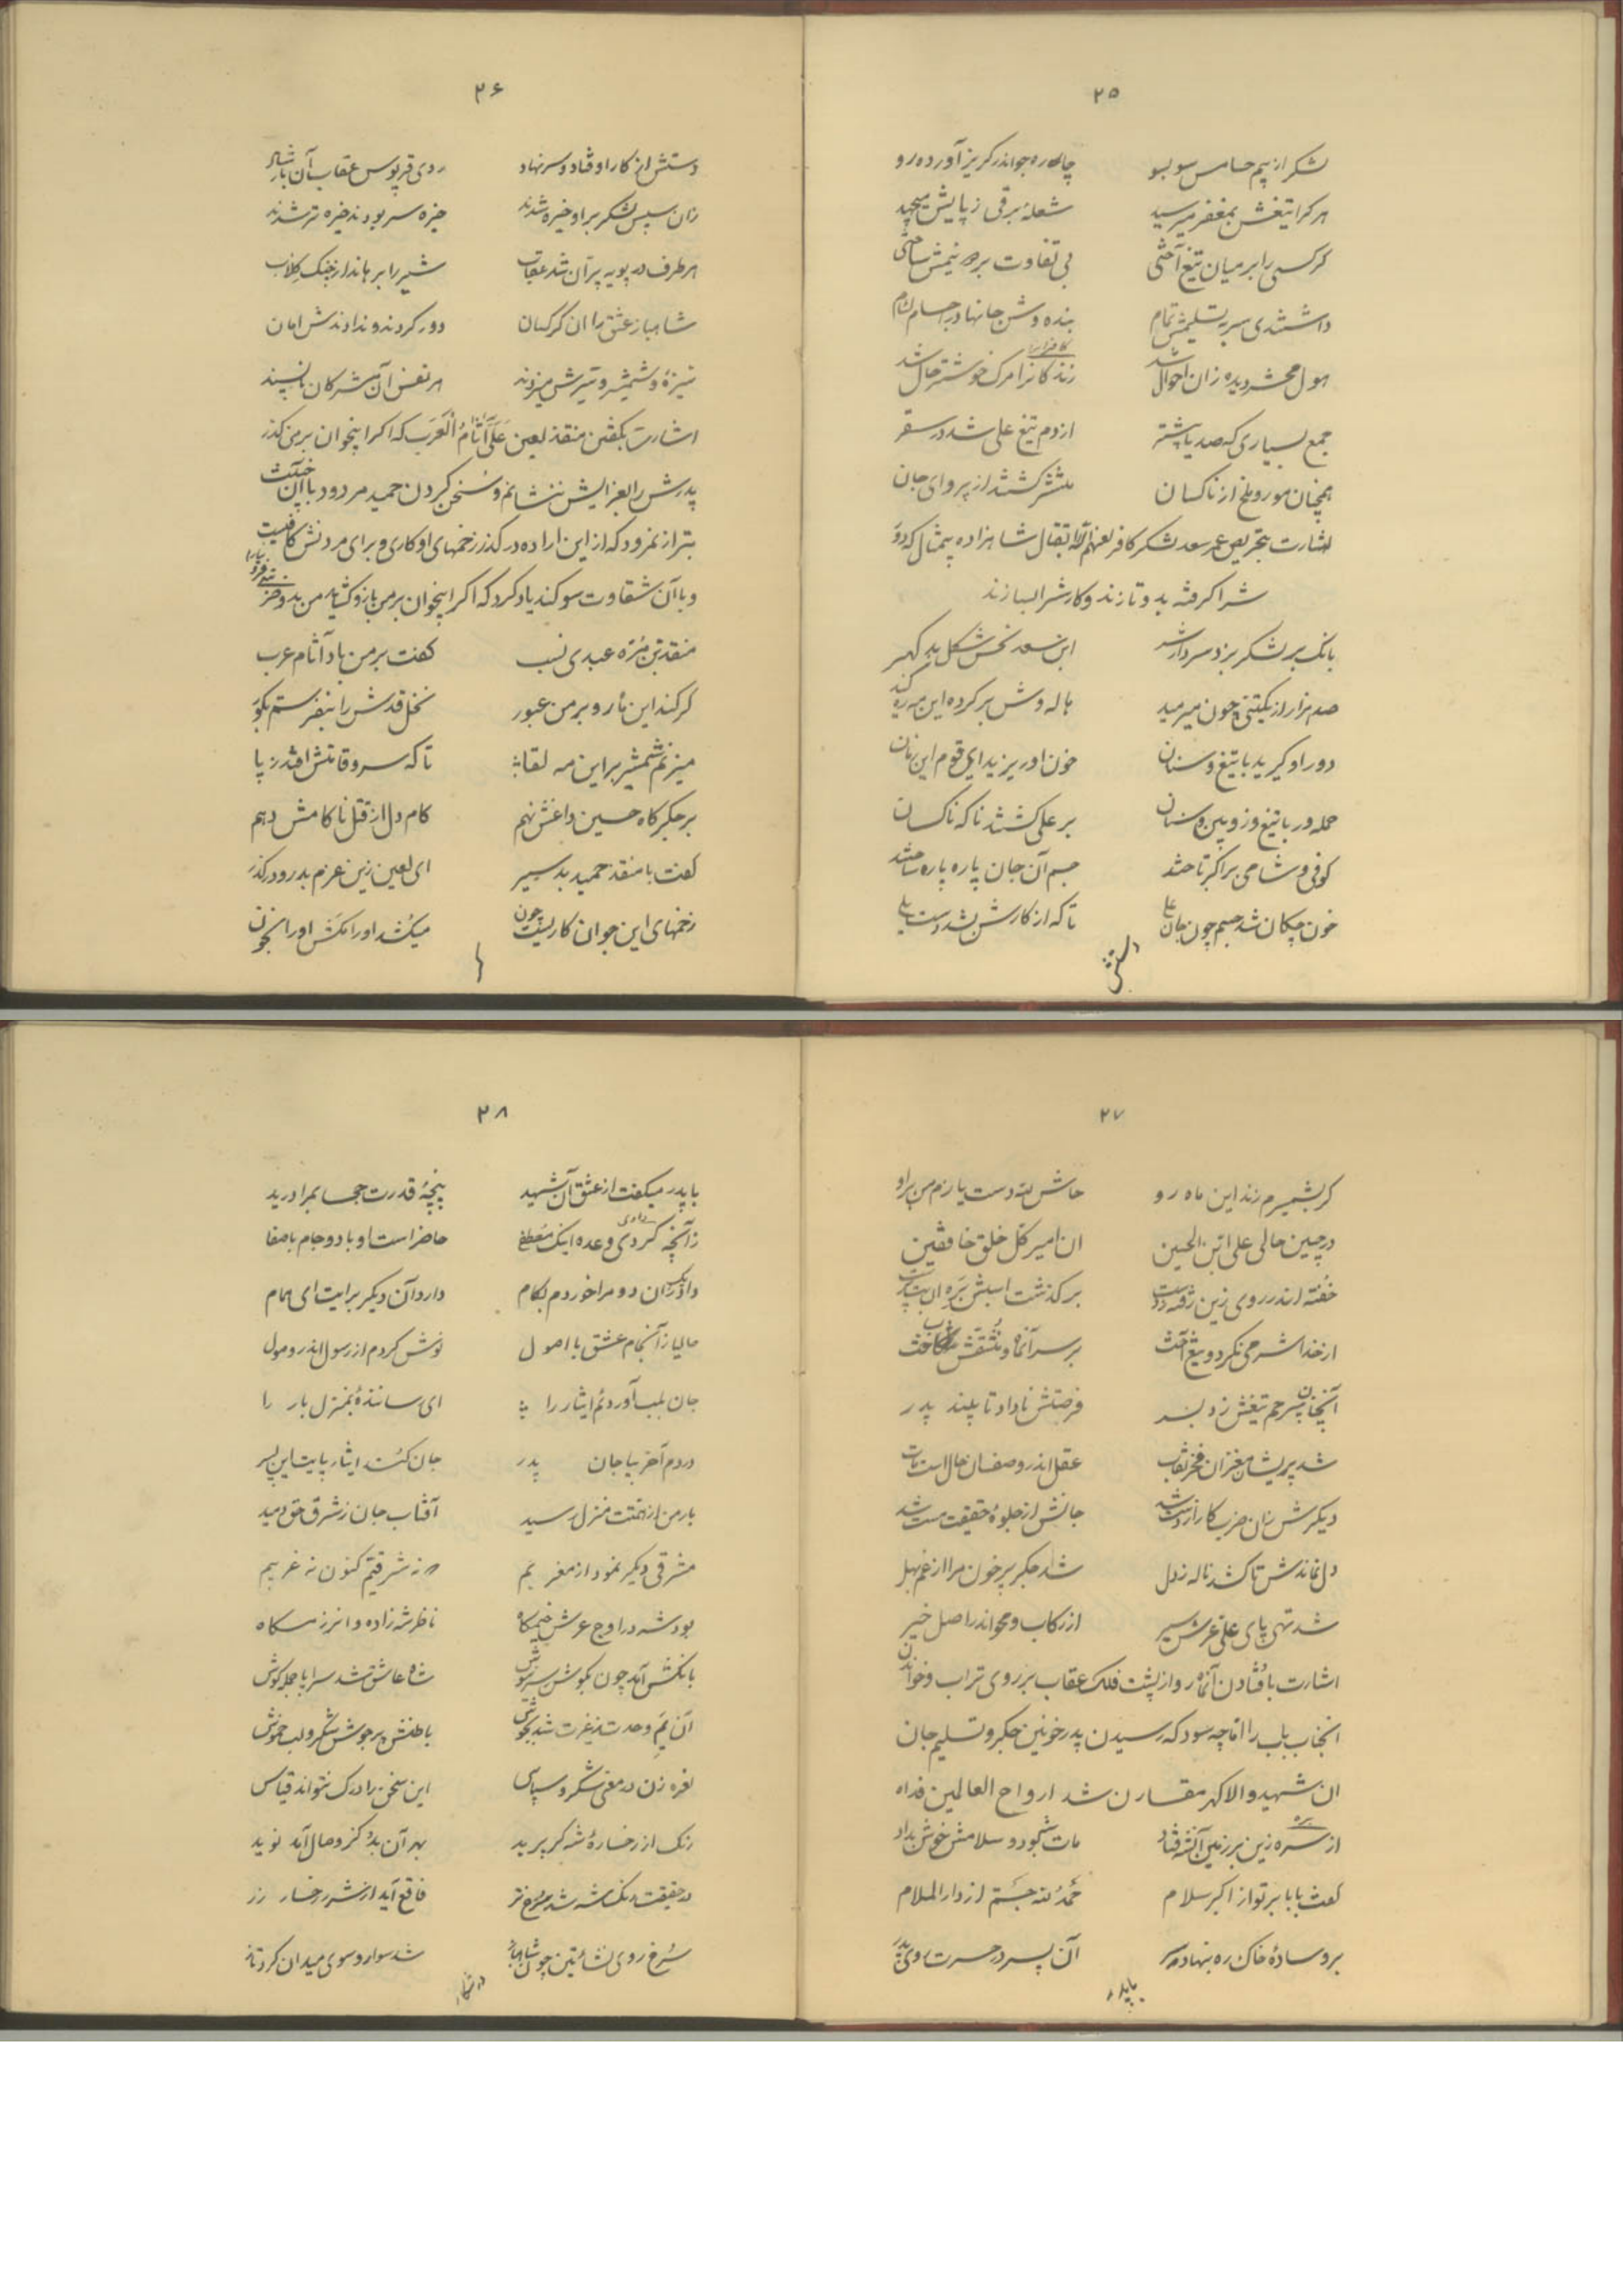 ۲۵
لشکر از بیم حسامس سو بسو چاره جو اندر گریز آورده رو
هر کرا تیغش بمغفر میرسید شعلهٔ برقی ز پایش میجهید
گر کسی را بر میان تیغ آختی بی تفاوت بر دو نیمش ساختی
داشتندی سر به تسلیمش تمام بنده وش جانها در اجسام لئام
هول محشر دیده زان احوال شد زندگانرا مرگ خوشتر حال شد
جمع بسیاری که صد با پشته از دم تیغ علی شد در سقر
همچنان مور و ملخ از ناکسان منتشر گشتند از پروای جان
اشارت بتحریص عمر سعد لشکر کافر لعنهم الله بقتال شاهزاده بیمثال که دو
شرا گرفته بدو تازند و کارشرا بسازند
بانک بر لشکر بزد سردار شر ابن سعد نحس شکل بد گهر
صد هزار از یکتنی چون میرمید هاله وش بر گرد این مه ره کنید
دور او گیرید با تیغ و سنان خون او ریزید ای قوم این زمان
حمله ور با تیغ و زوبین و سنان بر علی گشتند ناگه ناکسان
کوفی و شامی بر اکبر تاختند جسم آن جان پاره پاره ساختند
خون چکان شد جسم چون جان علی تا که از کارش بشد دست یلی
دستش
۲۶
دستش از کار اوفتاد و سر نهاد روی قربوس عقاب آن شاه راد
زان سپس لشکر بر او خیره شدند خیره سر بودند خیره تر شدند
هر طرف در پویه پران شد عقاب شیر را برهاند از چنگ کلاب
شاهباز عشق را آن کرکسان دور کردند و ندادندش امان
نیزه و شمشیر و تیرش میزدند هر نفس آن مشرکان ناپسند
اشارت بگفتن منقذ لعین عَلَیَّ آثامُ العَرَب که اگر اینجوان بر من گذر
پدرش را بعزایش ننشانم و سخن کردن حمید مردود با آن خباثت
بتر از نمرود که از این اراده در گذر زخمهای او کاری و برای مردنش کافیست
و با آن شقاوت سوگند یاد کرد که اگر اینجوان بر من باز گشاید من بدو ضربتی
منقذ بن مُرّه عبدی نسب گفت بر من باد آثام عرب
گر کند این ماه رو بر من عبور نخل قدش را
میزنم شمشیر بر این مه لقا تا که سرو قامتش افتد ز پا
بر جگرگاه حسین داغش نهم کام دل از قتل ناکامش دهم
گفت با منقذ حمید بد سیر ای لعین زین عزم بد رو در گذر
زخمهای این جوان کاریست چون میکُشد او را مکش او را کنون
۲۷
گر بشمشیرم زند این ماه رو حاش لله دست یازم من بر او
در چنین حالی علی ابن الحسین آن امیر کل خلق خافقین
خفته اندر روی زین رفته ز دست بر گذشت اسبش بَرِه آن بت پرست
از خدا شرمی نکرد و تیغ آخت بر سر آنماه و
آنچنان بیرحم تیغش زد بسر فرصتش نا داد تا بیند پدر
شد پریشان مغز آن فخر نقاب عقل اندر وصف آن حال است مات
دیگرش زان ضرب کار از دست شد جانش از جلوهٔ حقیقت مست شد
دل نماندش تا کشد ناله ز دل شد جگر پر خون مرا از غم بهل
شد تهی پای علی عرش سیر از رکاب و محو اندر اصل خیر
اشارت بافتادن آنماه رو از پشت فلک عقاب بر روی تراب و خواندن
انجناب باب را اما چه سود که رسیدن پدر خونین جگر و تسلیم جان
ان شهید والا گهر مقارن شد ارواح العالمین فداه
از سره زین بر زمین آنشه فتاد مات شه بود و سلامش خوش بداد
گفت بابا بر تو از اکبر سلام حَمدُ لله جَستم از دار الملام
بر وسادهٔ خاک ره بنهاد سر آن پسر در حسرت روی پدر
با پدر
۲۸
با پدر میگفت از عشق آن شهید پنجهٔ قدرت حجابمرا درید
زآنچه کردی وعده اینک مصطفی حاضر است او با دو جام با صفا
داد زان دو مرا خوردم بکام دارد آن دیگر برایت ای همام
حالیا زآنجام عشق با اصول نوش کردم از رسول اندر وصول
جان بلب آورده ام ایثار را ای رسانندهٔ بمنزل بار را
در دم آخر بیا جان پدر جان کند ایثار پایت این پسر
بار من از همتت منزل رسید آفتاب جان ز شرق حق دمید
مشرقی دیگر نمود از مغربیم نه شرقیم کنون نه غربیم
بود شه در اوج عرش خیمگاه ناظر شهزاده و آن رزمگاه
بانگش آمد چون بگوش سر بوش شاه عاشق شد سراپا جمله گوش
آن یَمِ وحدت ز غیرت شد بجوش باطنش پر جوش شکر و لب خموش
نعره زن در معنی شکر و سپاس این سخن را درک نتواند قیاس
رنگ از رخسارهٔ شه گر پرید بهر آن بُد کز وصال آمد نوید
در حقیقت رنگ شه شد سرخ تر فاقع آید از شه رخسار زر
سُرخ روی نشأتین چون شاهباز شد سوار و سوی میدان کرد تاز